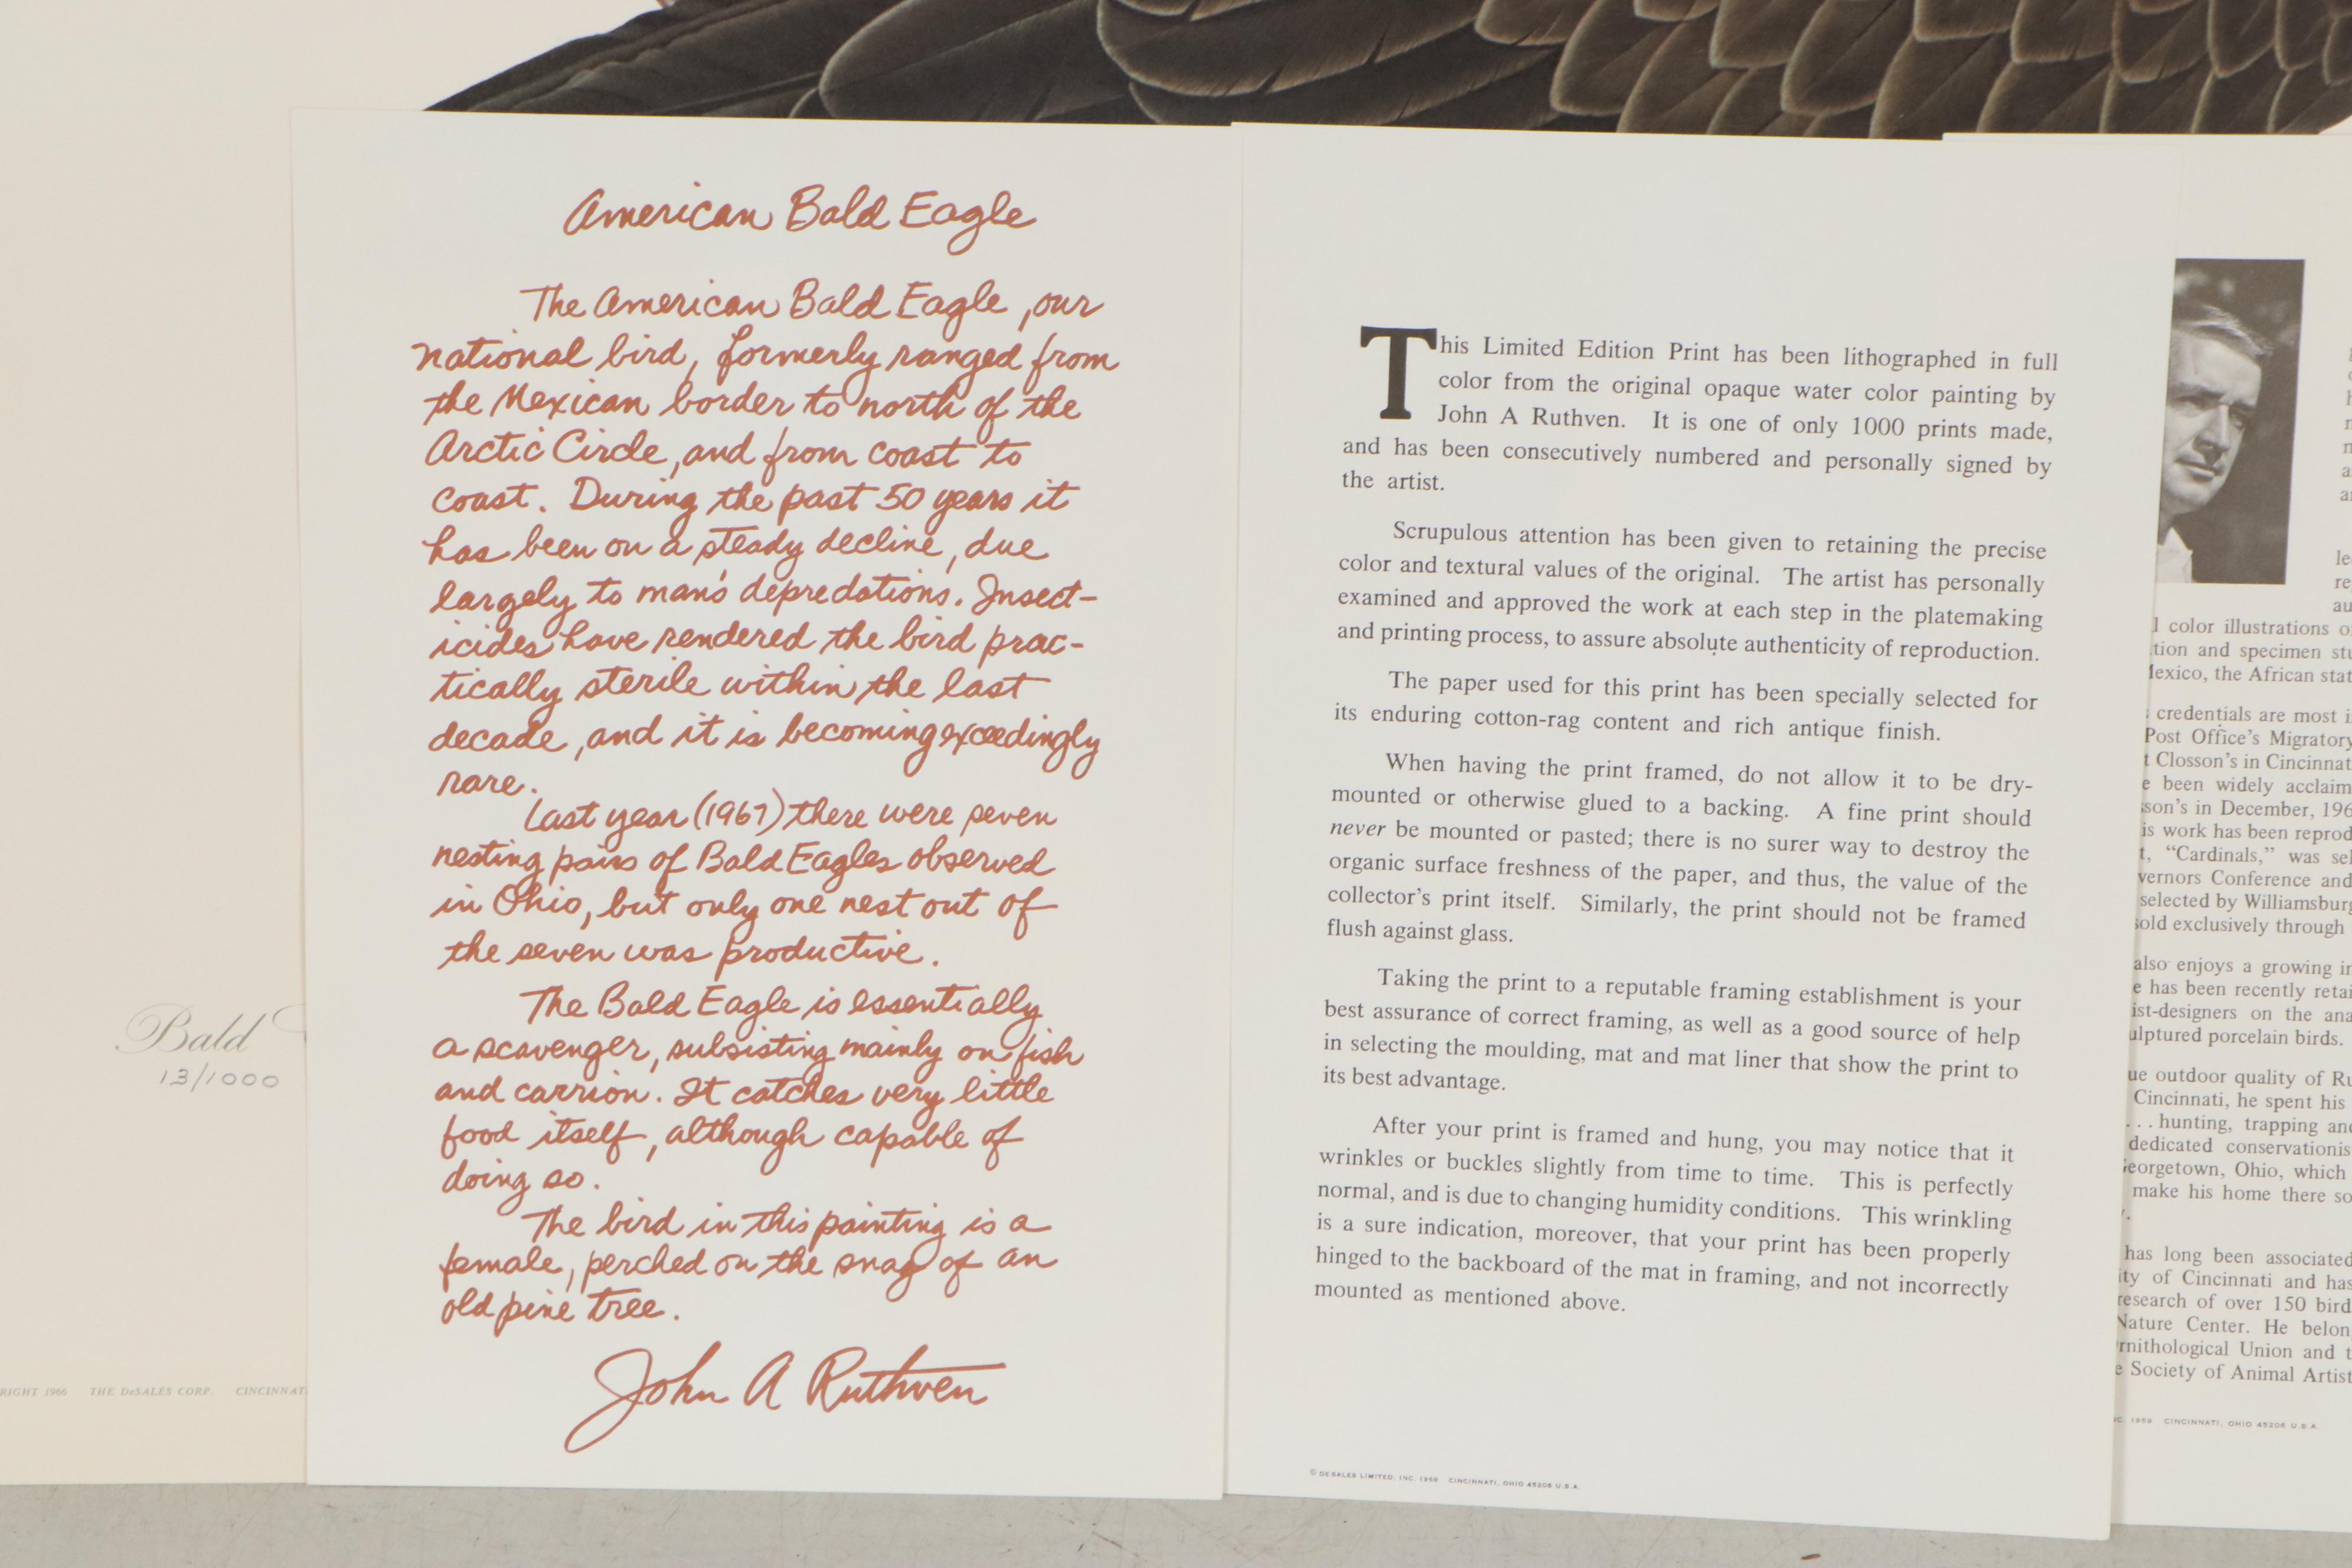 American Bald Eagle
The American Bald Eagle, our
national bird, formerly ranged from
the Mexican border to north of the
Arctic Circle, and from coast to
coast. During the past 50 years it
has been on a steady decline, due
largely to man's depredations. Insect-
icides have rendered the bird prac-
tically sterile within the last
decade, and it is becoming exceedingly
rare.
Last year (1967) there were seven
nesting pairs of Bald Eagles observed
in Ohio, but only one nest out of
the seven was productive.
The Bald Eagle is essentially
a scavenger, subsisting mainly on fish
and carrion. It catches very little
food itself, although capable of
doing so.
The bird in this painting is a
female, perched on the snag of an
old pine tree.
John A Ruthven
Bald
13/1000
RIGHT 1966 THE DeSALES CORP. CINCINNAT
This Limited Edition Print has been lithographed in full
color from the original opaque water color painting by
John A Ruthven. It is one of only 1000 prints made,
and has been consecutively numbered and personally signed by
the artist.
Scrupulous attention has been given to retaining the precise
color and textural values of the original. The artist has personally
examined and approved the work at each step in the platemaking
and printing process, to assure absolute authenticity of reproduction.
The paper used for this print has been specially selected for
its enduring cotton-rag content and rich antique finish.
When having the print framed, do not allow it to be dry-
mounted or otherwise glued to a backing. A fine print should
never be mounted or pasted; there is no surer way to destroy the
organic surface freshness of the paper, and thus, the value of the
collector's print itself. Similarly, the print should not be framed
flush against glass.
Taking the print to a reputable framing establishment is your
best assurance of correct framing, as well as a good source of help
in selecting the moulding, mat and mat liner that show the print to
its best advantage.
After your print is framed and hung, you may notice that it
wrinkles or buckles slightly from time to time. This is perfectly
normal, and is due to changing humidity conditions. This wrinkling
is a sure indication, moreover, that your print has been properly
hinged to the backboard of the mat in framing, and not incorrectly
mounted as mentioned above.
© DESALES LIMITED, INC. 1969 CINCINNATI, OHIO 45206 U.S.A.
le
re
au
l color illustrations o
tion and specimen stu
exico, the African stat
credentials are most i
Post Office's Migratory
t Closson's in Cincinnat
e been widely acclaim
son's in December, 196
is work has been reprod
t, "Cardinals," was sel
vernors Conference and
selected by Williamsburg
sold exclusively through
also enjoys a growing in
e has been recently retai
ist-designers on the ana
ulptured porcelain birds.
ue outdoor quality of Ru
Cincinnati, he spent his
... hunting, trapping and
dedicated conservationis
eorgetown, Ohio, which
make his home there so
y.
has long been associated
ity of Cincinnati and has
research of over 150 bird
Nature Center. He belon
rnithological Union and t
e Society of Animal Artist
1969 CINCINNATI, OHIO 45206 U.S.A.